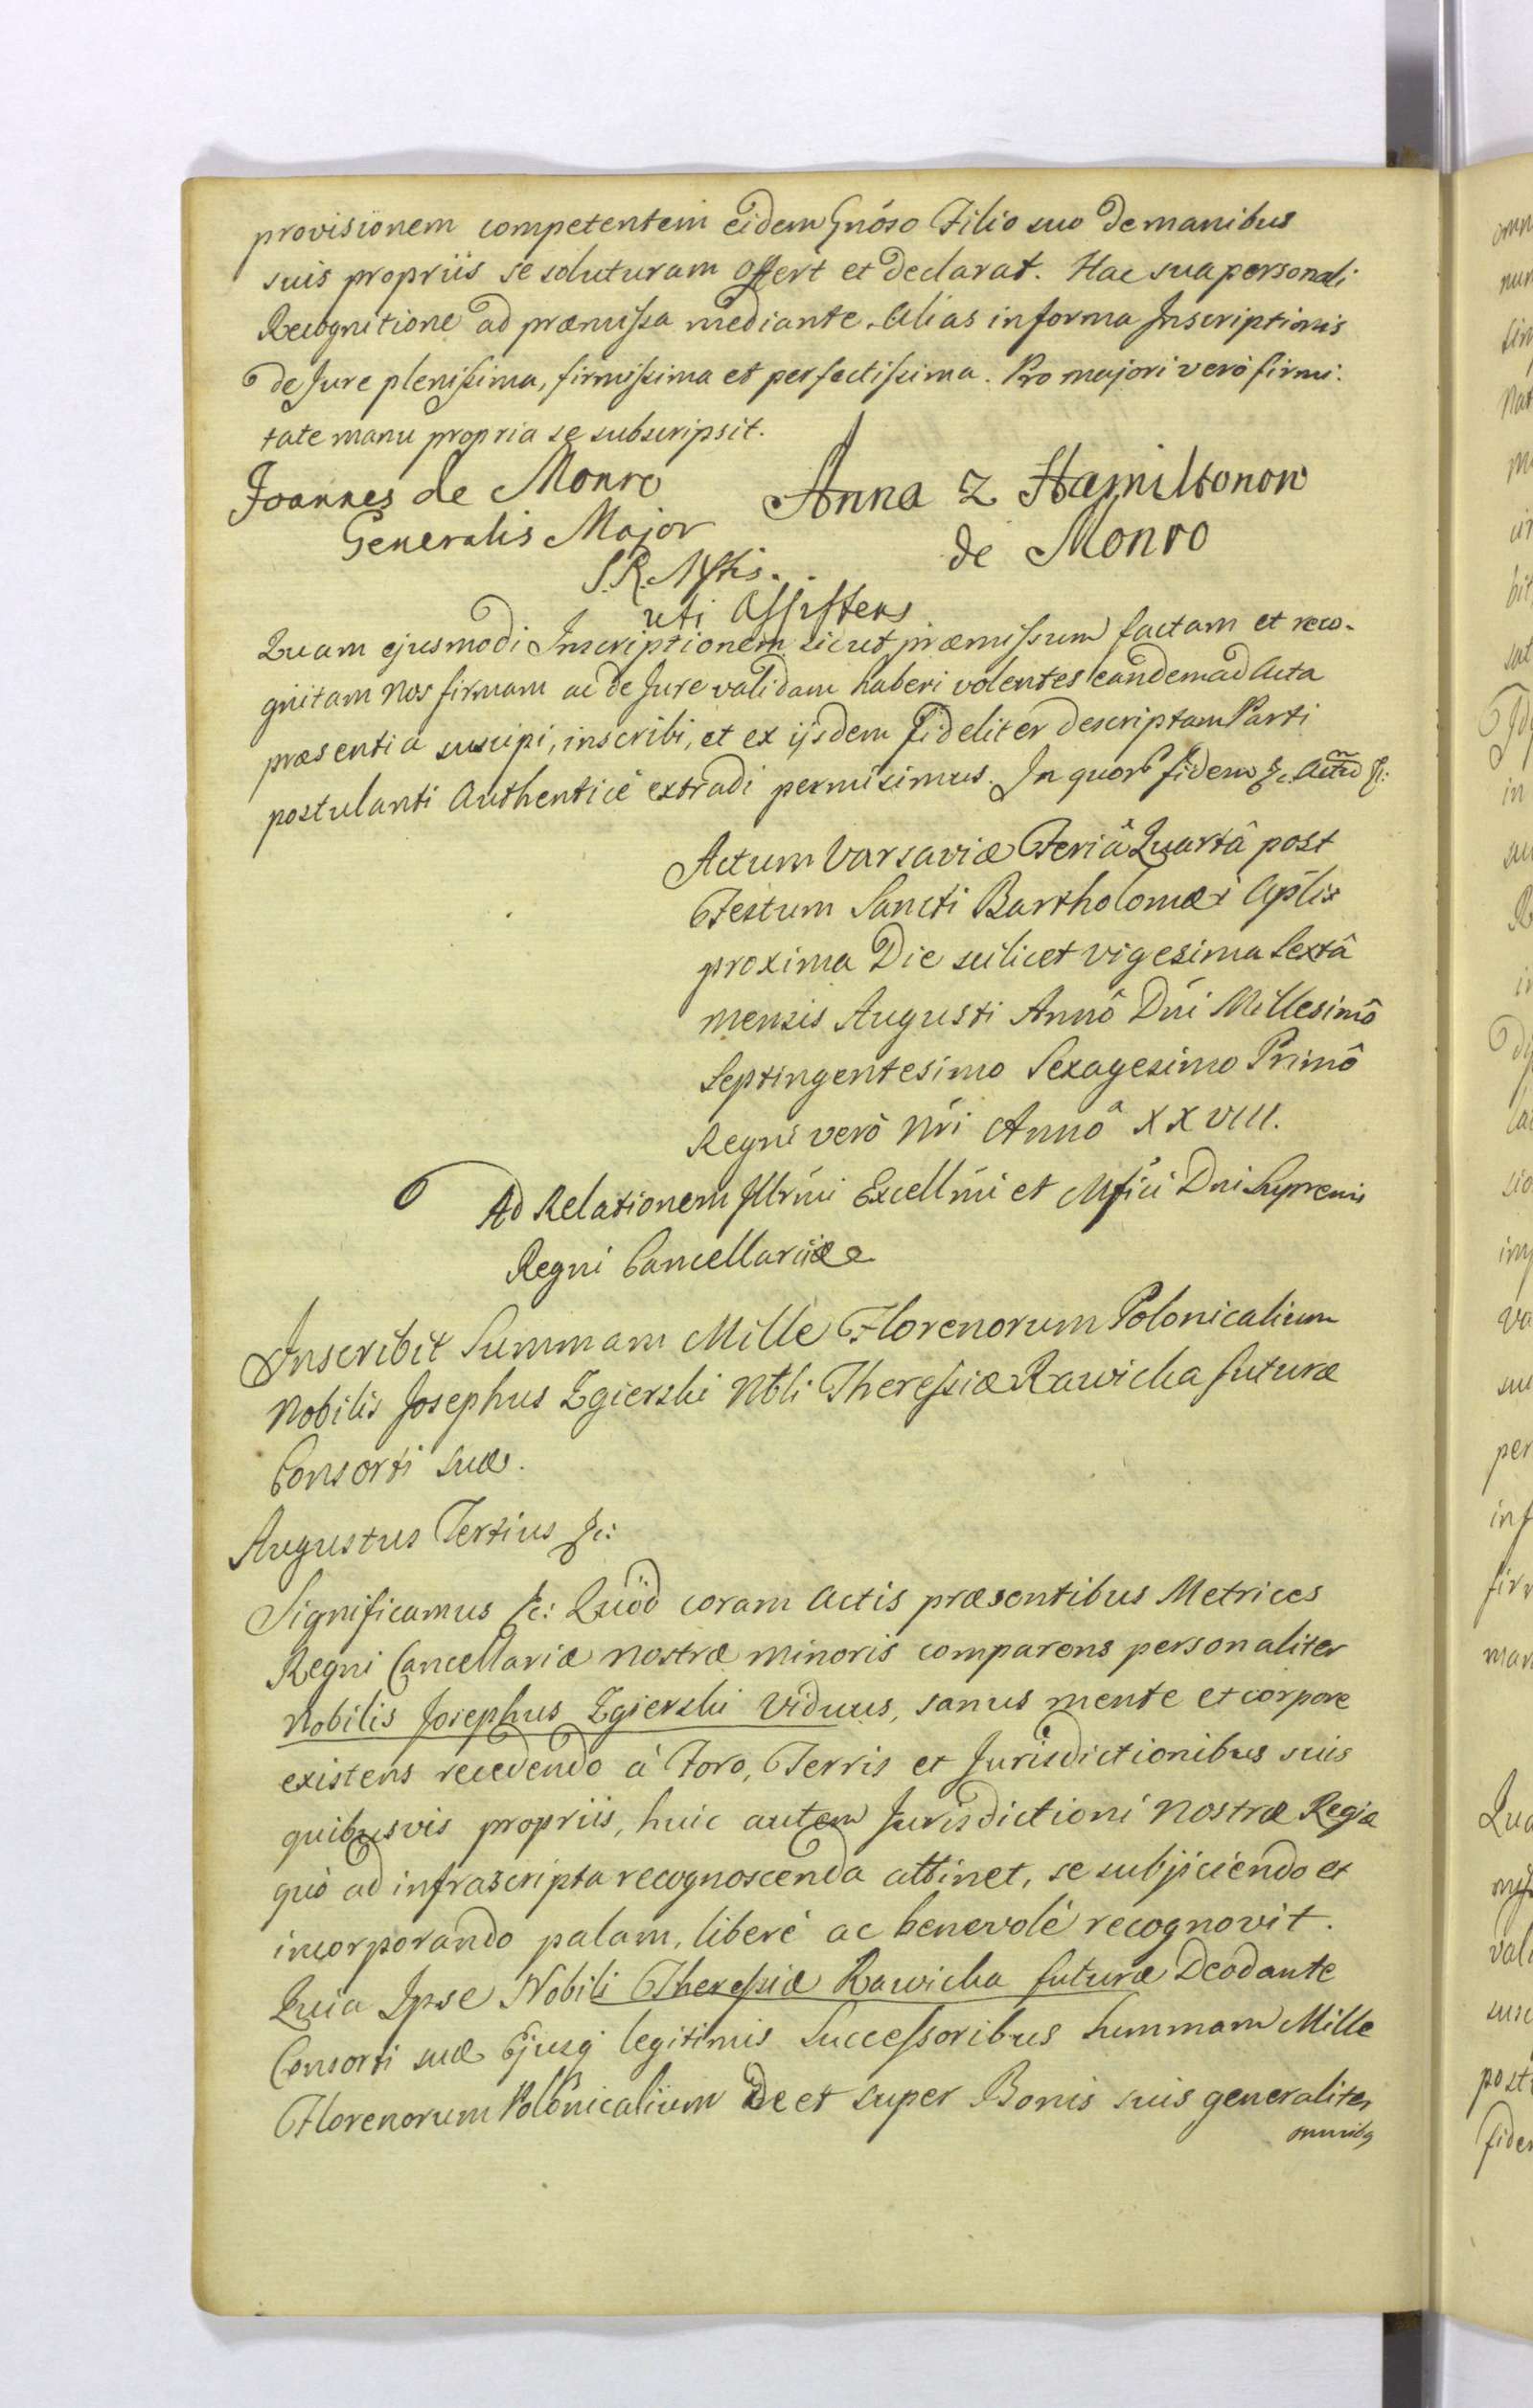 provisionem competentem eidem Gnóso Filio suo de manibus
suis propriis se soluturam offert et declarat. Hac sua personali
Recognitione ad præmissa mediante. Alias in forma Inscriptionis
de Jure plenissima, firmissima et perfectissima. Pro majori verò firmi:
tate manu propria se subscripsit.
Joannes de Monro
Generalis Major
S. R. Mttis.
uti Assistens
Anna z Hamiltonow
de Monro
Quam ejusmodi Inscriptionem sicut præmissum factam et reco-
gnitam Nos firmam ac de Jure validam haberi volentes eandem ad Acta
præsentia suscipi, inscribi, et ex ijsdem fideliter descriptam Parti
postulanti Authenticè extradi permisimus. In quor fidem &c Actũ &c:
Actum Varsaviæ Feriâ Quartâ post
Festum Sancti Bartholomæi Aplis
proxima Die scilicet vigesima Sextâ
mensis Augusti Annô Dńi Millesimô
Septingentesimo Sexagesimo Primô
Regni verò Nri Annô XXVIII.
Ad Relationem Illrmi Excellmi et Mfici Dni Supremi
Regni Cancellarii
Inscribit Summam Mille Florenorum Polonicalium
Nobilis Josephus Zgierski Nbli Theressiæ Rawicka futuræ
Consorti suæ.
Augustus Tertius &c:
Significamus &c: Quòd coram Actis præsentibus Metrices
Regni Cancellariæ nostræ minoris comparens personaliter
Nobilis Josephus Zgierski Viduus, sanus mente et corpore
existens recedendo à Foro, Terris et Jurisdictionibus suis
quibusvis propriis, huic autem Jurisdictioni Nostræ Regiæ
quò ad infrascripta recognoscenda attinet, se subjiciendo et
incorporando palam, liberè ac benevolè recognovit.
Quia Ipse Nobili Theressiæ Rawicka futuræ Deodante
Consorti suæ Ejusq legitimis Successoribus Summam Mille
Florenorum Polonicalium De et super Bonis suis generaliter
omnibq